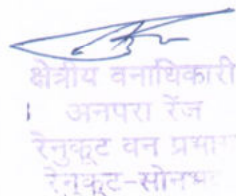 क्षेत्रीय वनाधिकारी
अनपरा रेंज
रेनुकूट वन
रेनुकूट-सोनभद्र